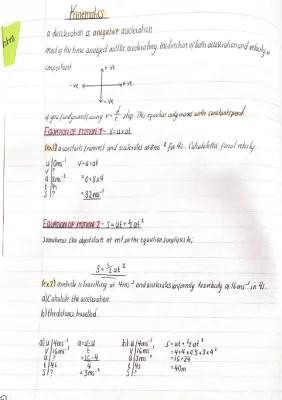 Kinematics
a deceleration is a negative acceleration
most of the time an object will be accelerating. the direction of both acceleration and velocity is
important
+ve
-ve
+ve
-ve
if you find yourself using v = d/t stop. This equation only works with constant speed.
EQUATION OF MOTION 1 - v = u + at
(ex1) a car starts from rest and accelerates at 8ms⁻² for 4s. Calculate the final velocity.
u | 0ms⁻¹ v = u + at
v | ?
a | 8ms⁻² = 0 + 8 x 4
t | 4s
s | ? = 32ms⁻¹
EQUATION OF MOTION 2 - s = ut + ½ at²
sometimes the object starts at rest so the equation simplifies to;
s = ½ at²
(ex2) a vehicle is travelling at 4ms⁻¹ and accelerates uniformly to a velocity of 16ms⁻¹ in 4s.
a) Calculate the acceleration
b) the distance travelled.
a) u | 4ms⁻¹ a = v-u/t b) u | 4ms⁻¹ s = ut + ½ at²
v | 16ms⁻¹ v | 16ms⁻¹ = 4 x 4 + 0.5 x 3 x 4²
a | ? = 16-4/4 a | 3ms⁻² = 16 + 24
t | 4s t | 4s = 40m
s | ? = 3ms⁻² s | ?